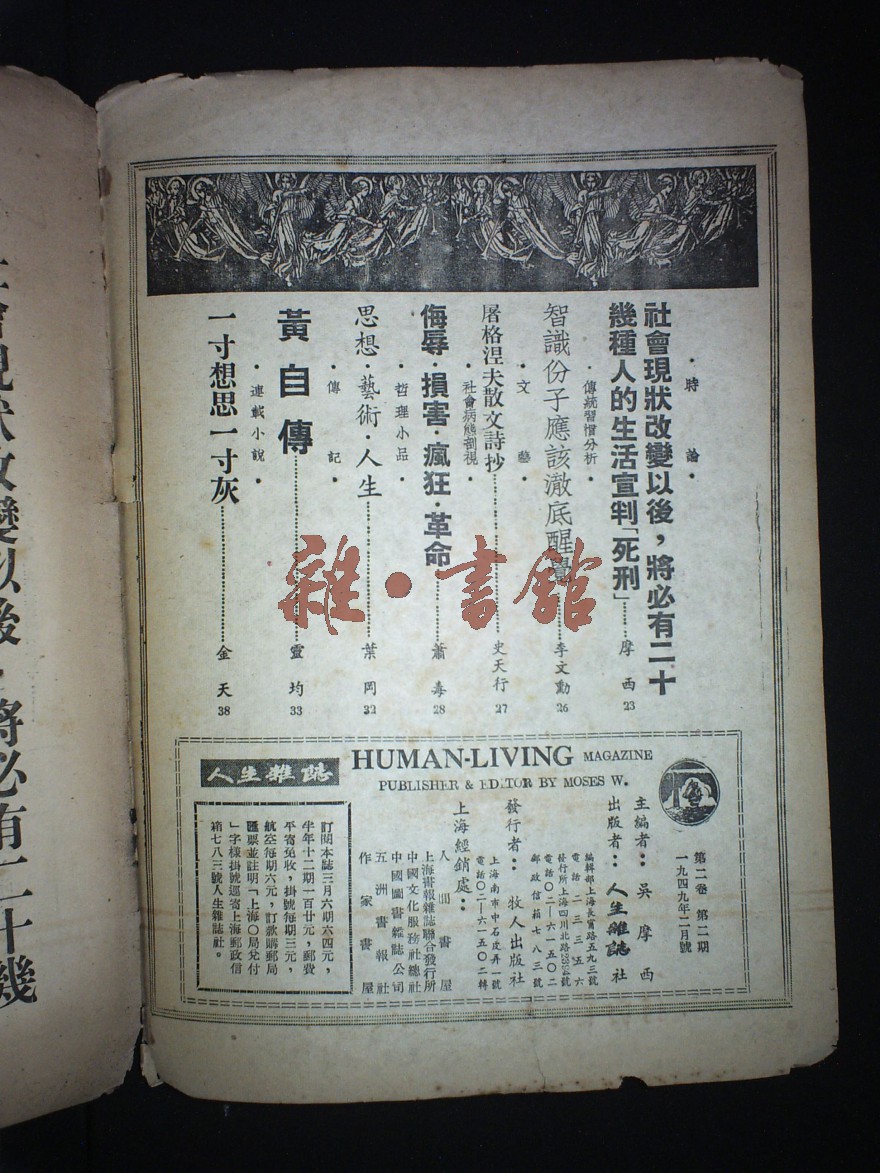 ·時論·
社會現狀改變以後，將必有二十
幾種人的生活宣判「死刑」……摩西 23
·傳統習慣分析·
智識份子應該澈底醒覺……李文勳 26
·文藝·
屠格涅夫散文詩抄……史天行 27
·社會病態剖視·
侮辱·損害·瘋狂·革命……蕭毒 28
·哲理小品·
思想·藝術·人生……葉岡 32
·傳記·
黃自傳……靈均 33
·連載小說·
一寸想思一寸灰……金天 38
雜·書館
HUMAN-LIVING MAGAZINE
PUBLISHER & EDITOR BY MOSES W.
人生雜誌
第二卷 第二期
一九四九年二月號
主編者：吳摩西
出版者：人生雜誌社
編輯部上海長寧路五九三號
電話二三三五六
發行所上海四川北路2394號
電話〇二—六一五〇二
郵政信箱七八三號
發行者：牧人出版社
上海南市中石皮弄一號
電話〇二—六一五〇二轉
上海經銷處：
人間書屋
上海書報雜誌聯合發行所
中國文化服務社總社
中國圖書雜誌公司
五洲書報社
作家書屋
訂閱本誌三月六期六四元，
半年十二期一百廿元，郵費
平寄免收，掛號每期三元，
航空每期六元，訂款購郵局
匯票並註明「上海〇局兌付
」字樣掛號逕寄上海郵政信
箱七八三號人生雜誌社。
社會現狀改變以後，將必有二十幾